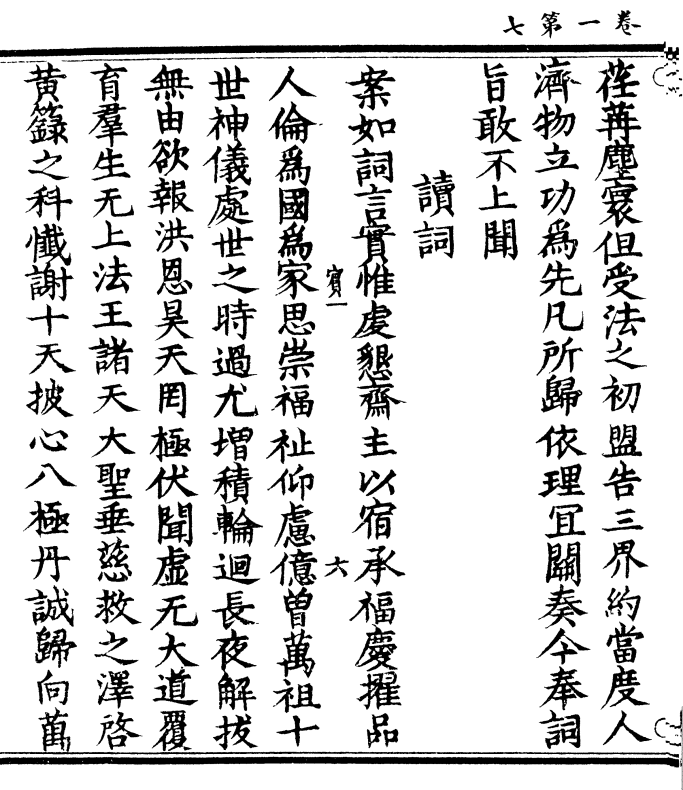 卷一第七
荏苒塵寰但受法之初盟告三界約當度人
濟物立功為先凡所歸依理冝關奏今奉詞
旨敢不上聞
讀詞
案如詞言實惟虔懇齋主以宿承福慶擢品
寳一
六
人倫為國為家思崇福祉仰慮億曽萬祖十
世神儀處世之時過尤増積輪迴長夜解拔
無由欲報洪恩昊天罔極伏聞虚无大道覆
育羣生无上法王諸天大聖垂慈救之澤啓
黄籙之科懺謝十天披心八極丹誠歸向萬